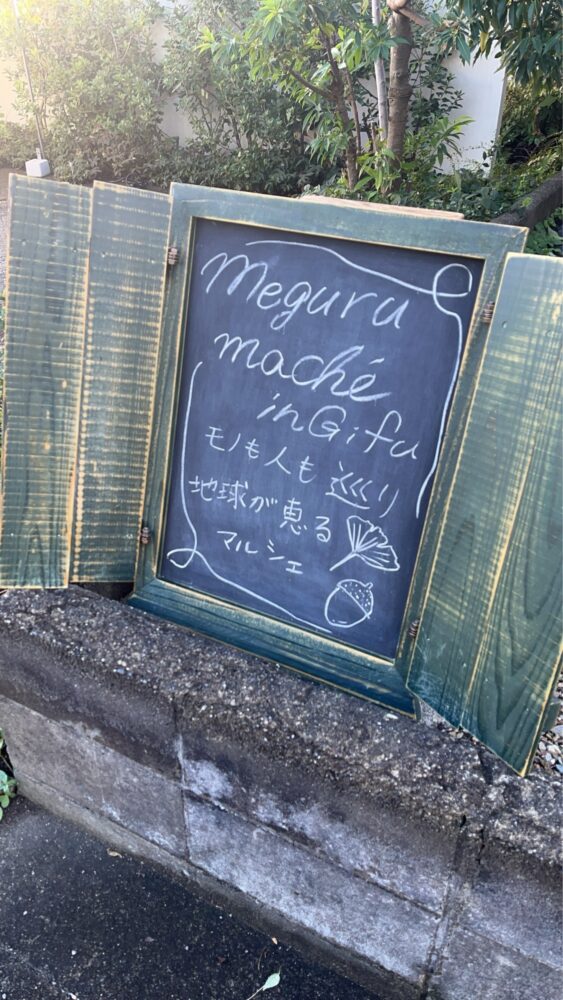 Meguru
maché
in Gifu
モノも人も巡り
地球が恵る
マルシェ